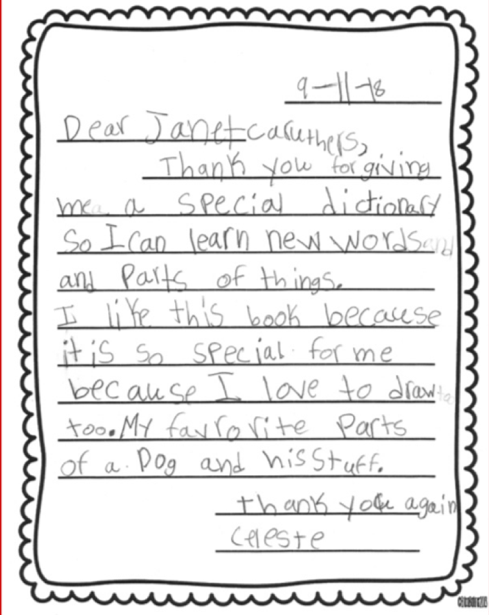 9-11-18
Dear Janet caruthers,
Thank you for giving
me a special dictionary
So I can learn new words
and Parts of things.
I like this book because
it is so special for me
because I love to draw
too. My favrorite Parts
of a Dog and his stuff.
thank you again
Celeste